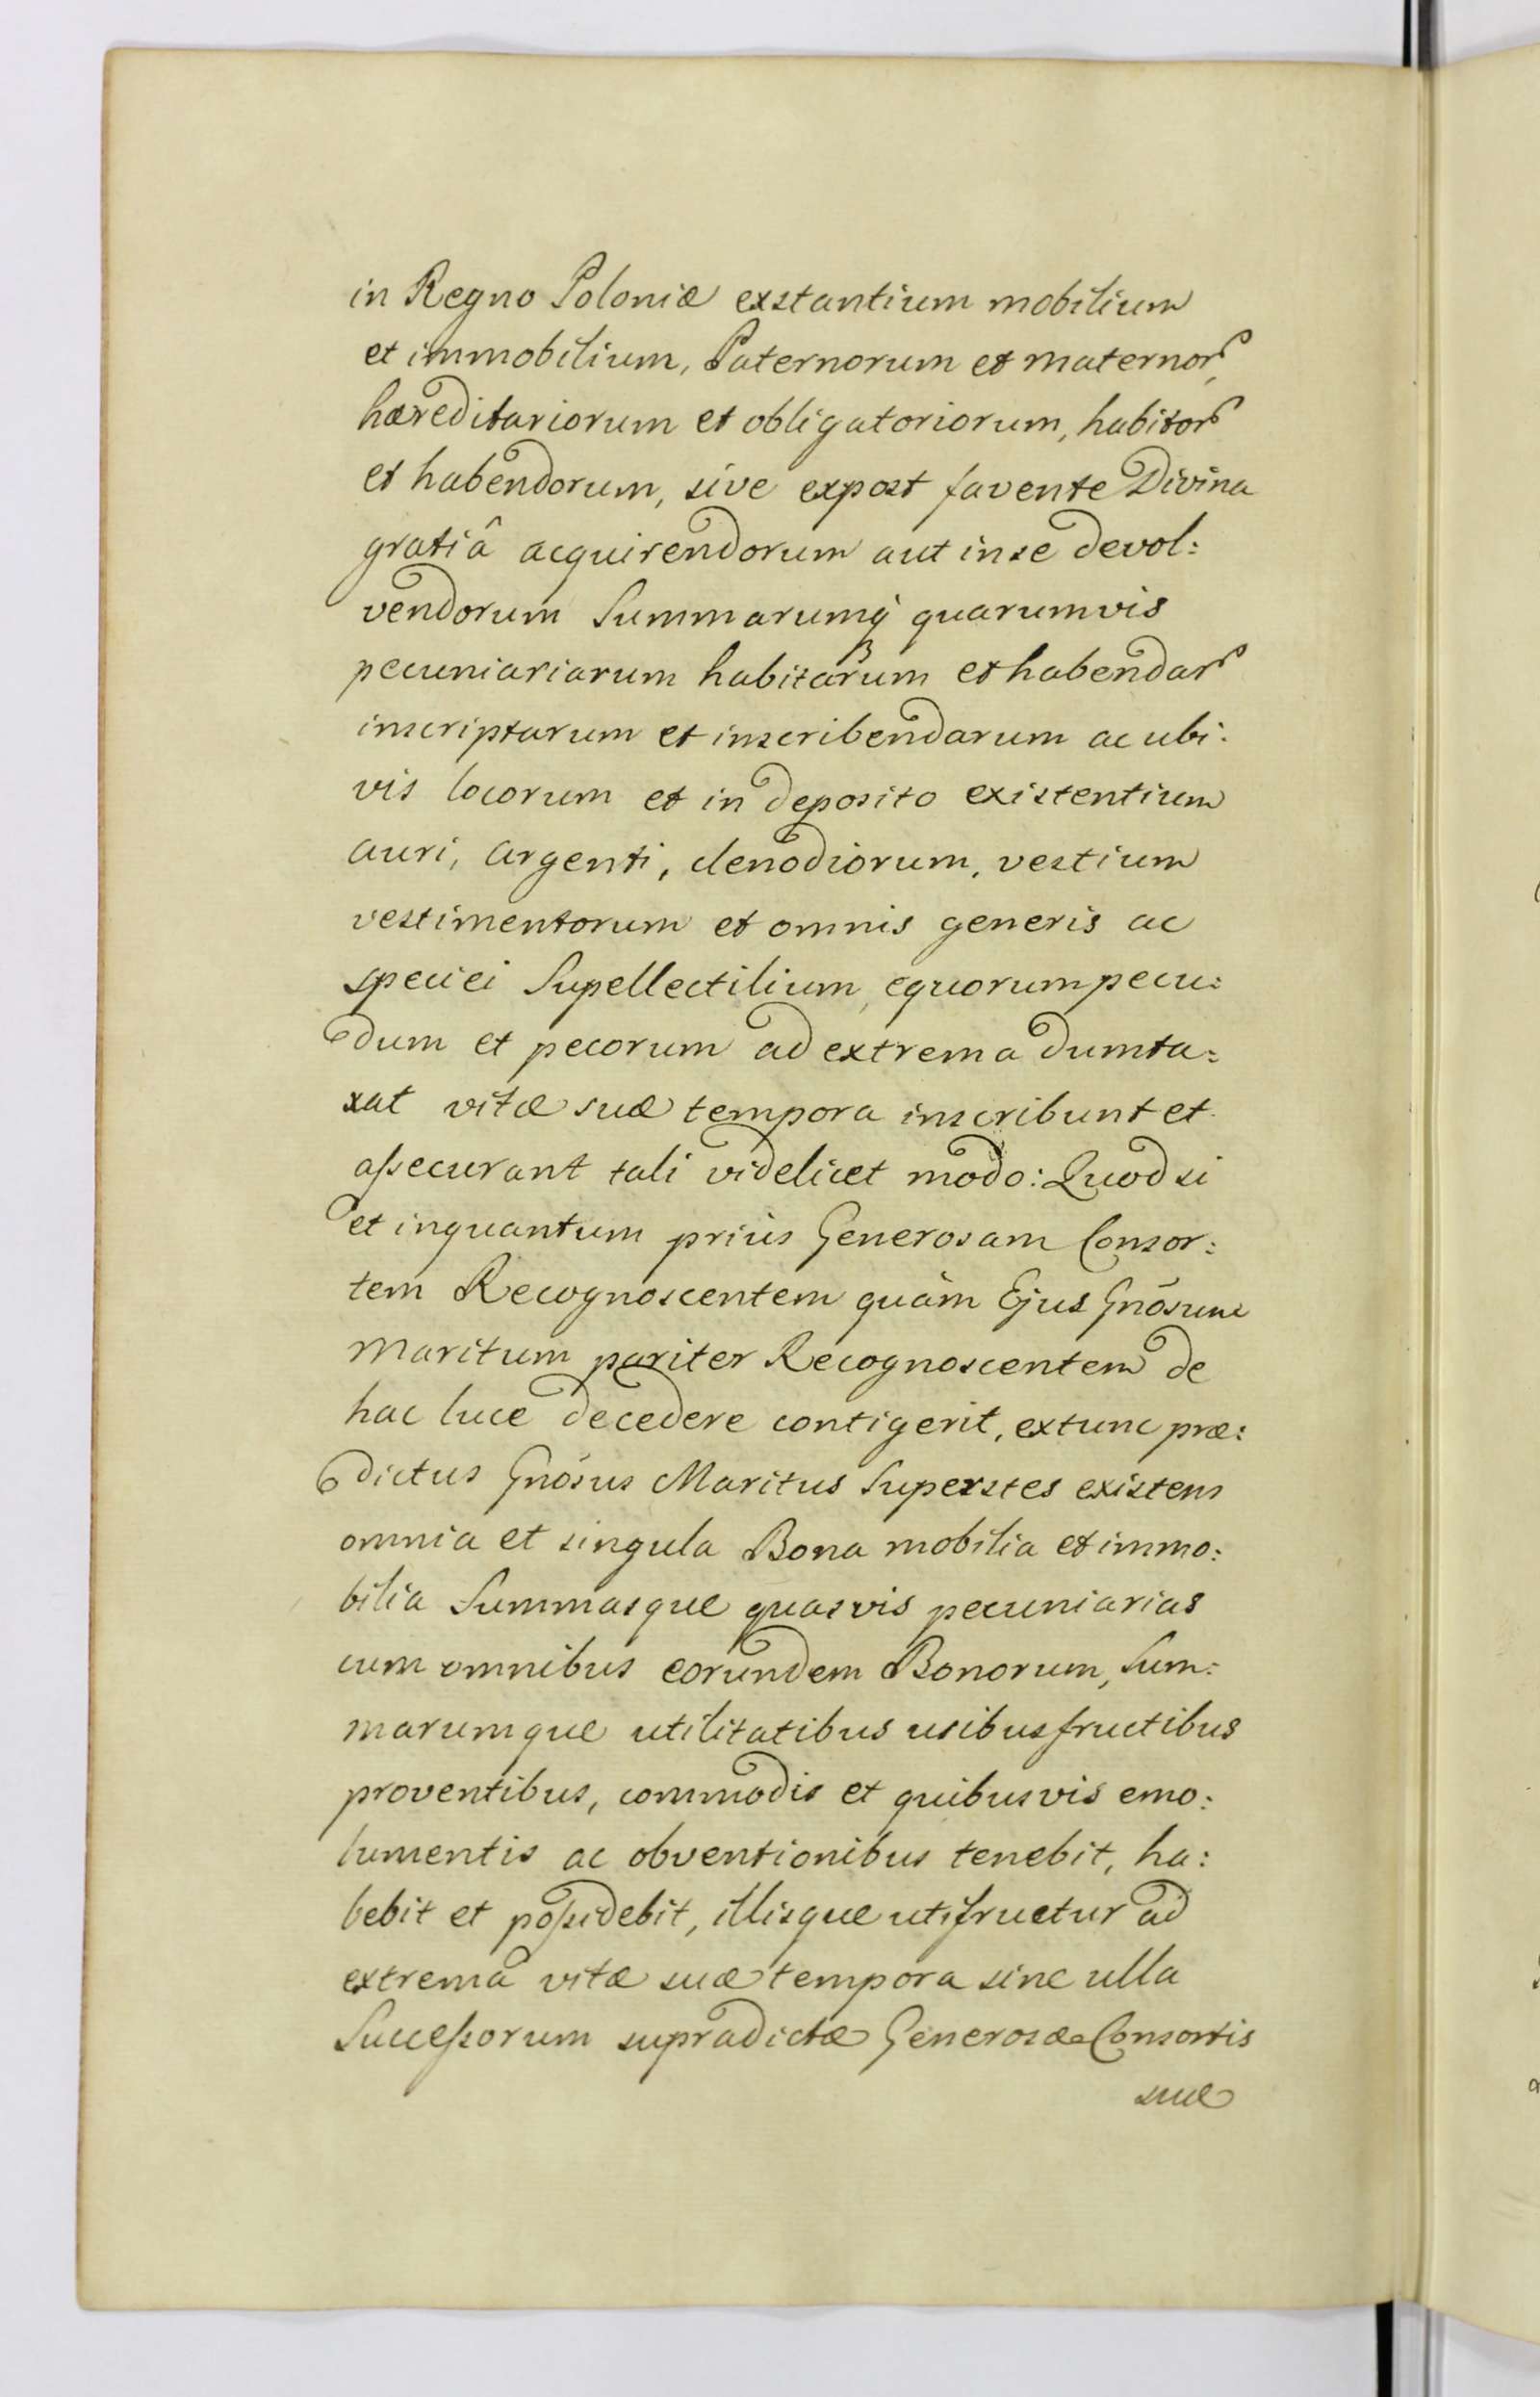 in Regno Poloniæ exstantium mobilium
et immobilium, Paternorum et maternor,
hæreditariorum et obligatoriorum, habitor
et habendorum, sive expost favente Divina
gratiâ acquirendorum aut in se devol:
vendorum Summarumq́ quarumvis
pecuniariarum habitarum et habendar
inscriptarum et inscribendarum ac ubi:
vis locorum et in deposito existentium
auri, argenti, clenodiorum, vestium
vestimentorum et omnis generis ac
speciei Supellectilium, equorum pecu:
dum et pecorum ad extrema dumta:
xat vitæ suæ tempora inscribunt et
assecurant tali videlicet modo: Quod si
et inquantum priùs Generosam Consor:
tem Recognoscentem quàm Ejus Gnōsum
Maritum pariter Recognoscentem de
hac luce decedere contigerit, extunc præ:
dictus Gnōsus Maritus Superstes existens
omnia et singula Bona mobilia et immo:
bilia Summasque quasvis pecuniarias
cum omnibus eorundem Bonorum, Sum:
marumque utilitatibus usibusfructibus
proventibus, commodis et quibusvis emo:
lumentis ac obventionibus tenebit, ha:
bebit et possidebit, illisque utifruetur ad
extrema vitæ suæ tempora sine ulla
Successorum supradictæ Generosæ Consortis
suæ